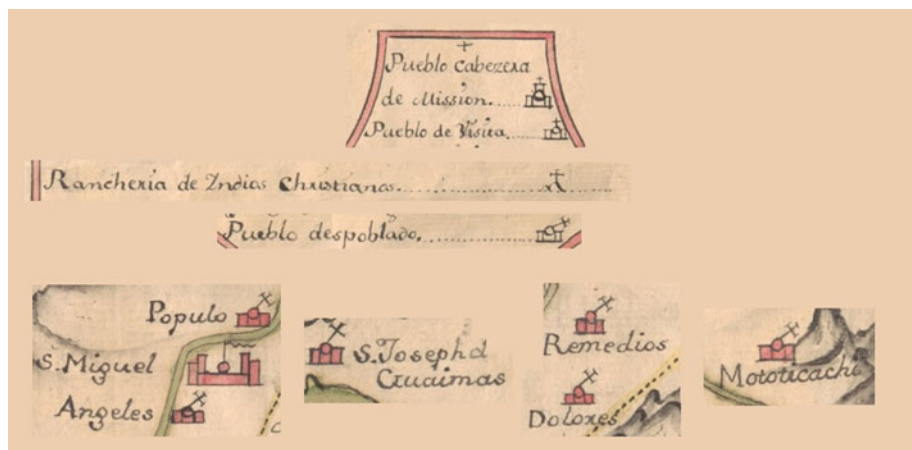 Pueblo cabezera
de Mission.
Pueblo de Visita.
Rancheria de Indios Christianos.
Pueblo despoblado.
Populo
S. Miguel
Angeles
S. Joseph d
Guaimas
Remedios
Dolores
Mototicachi